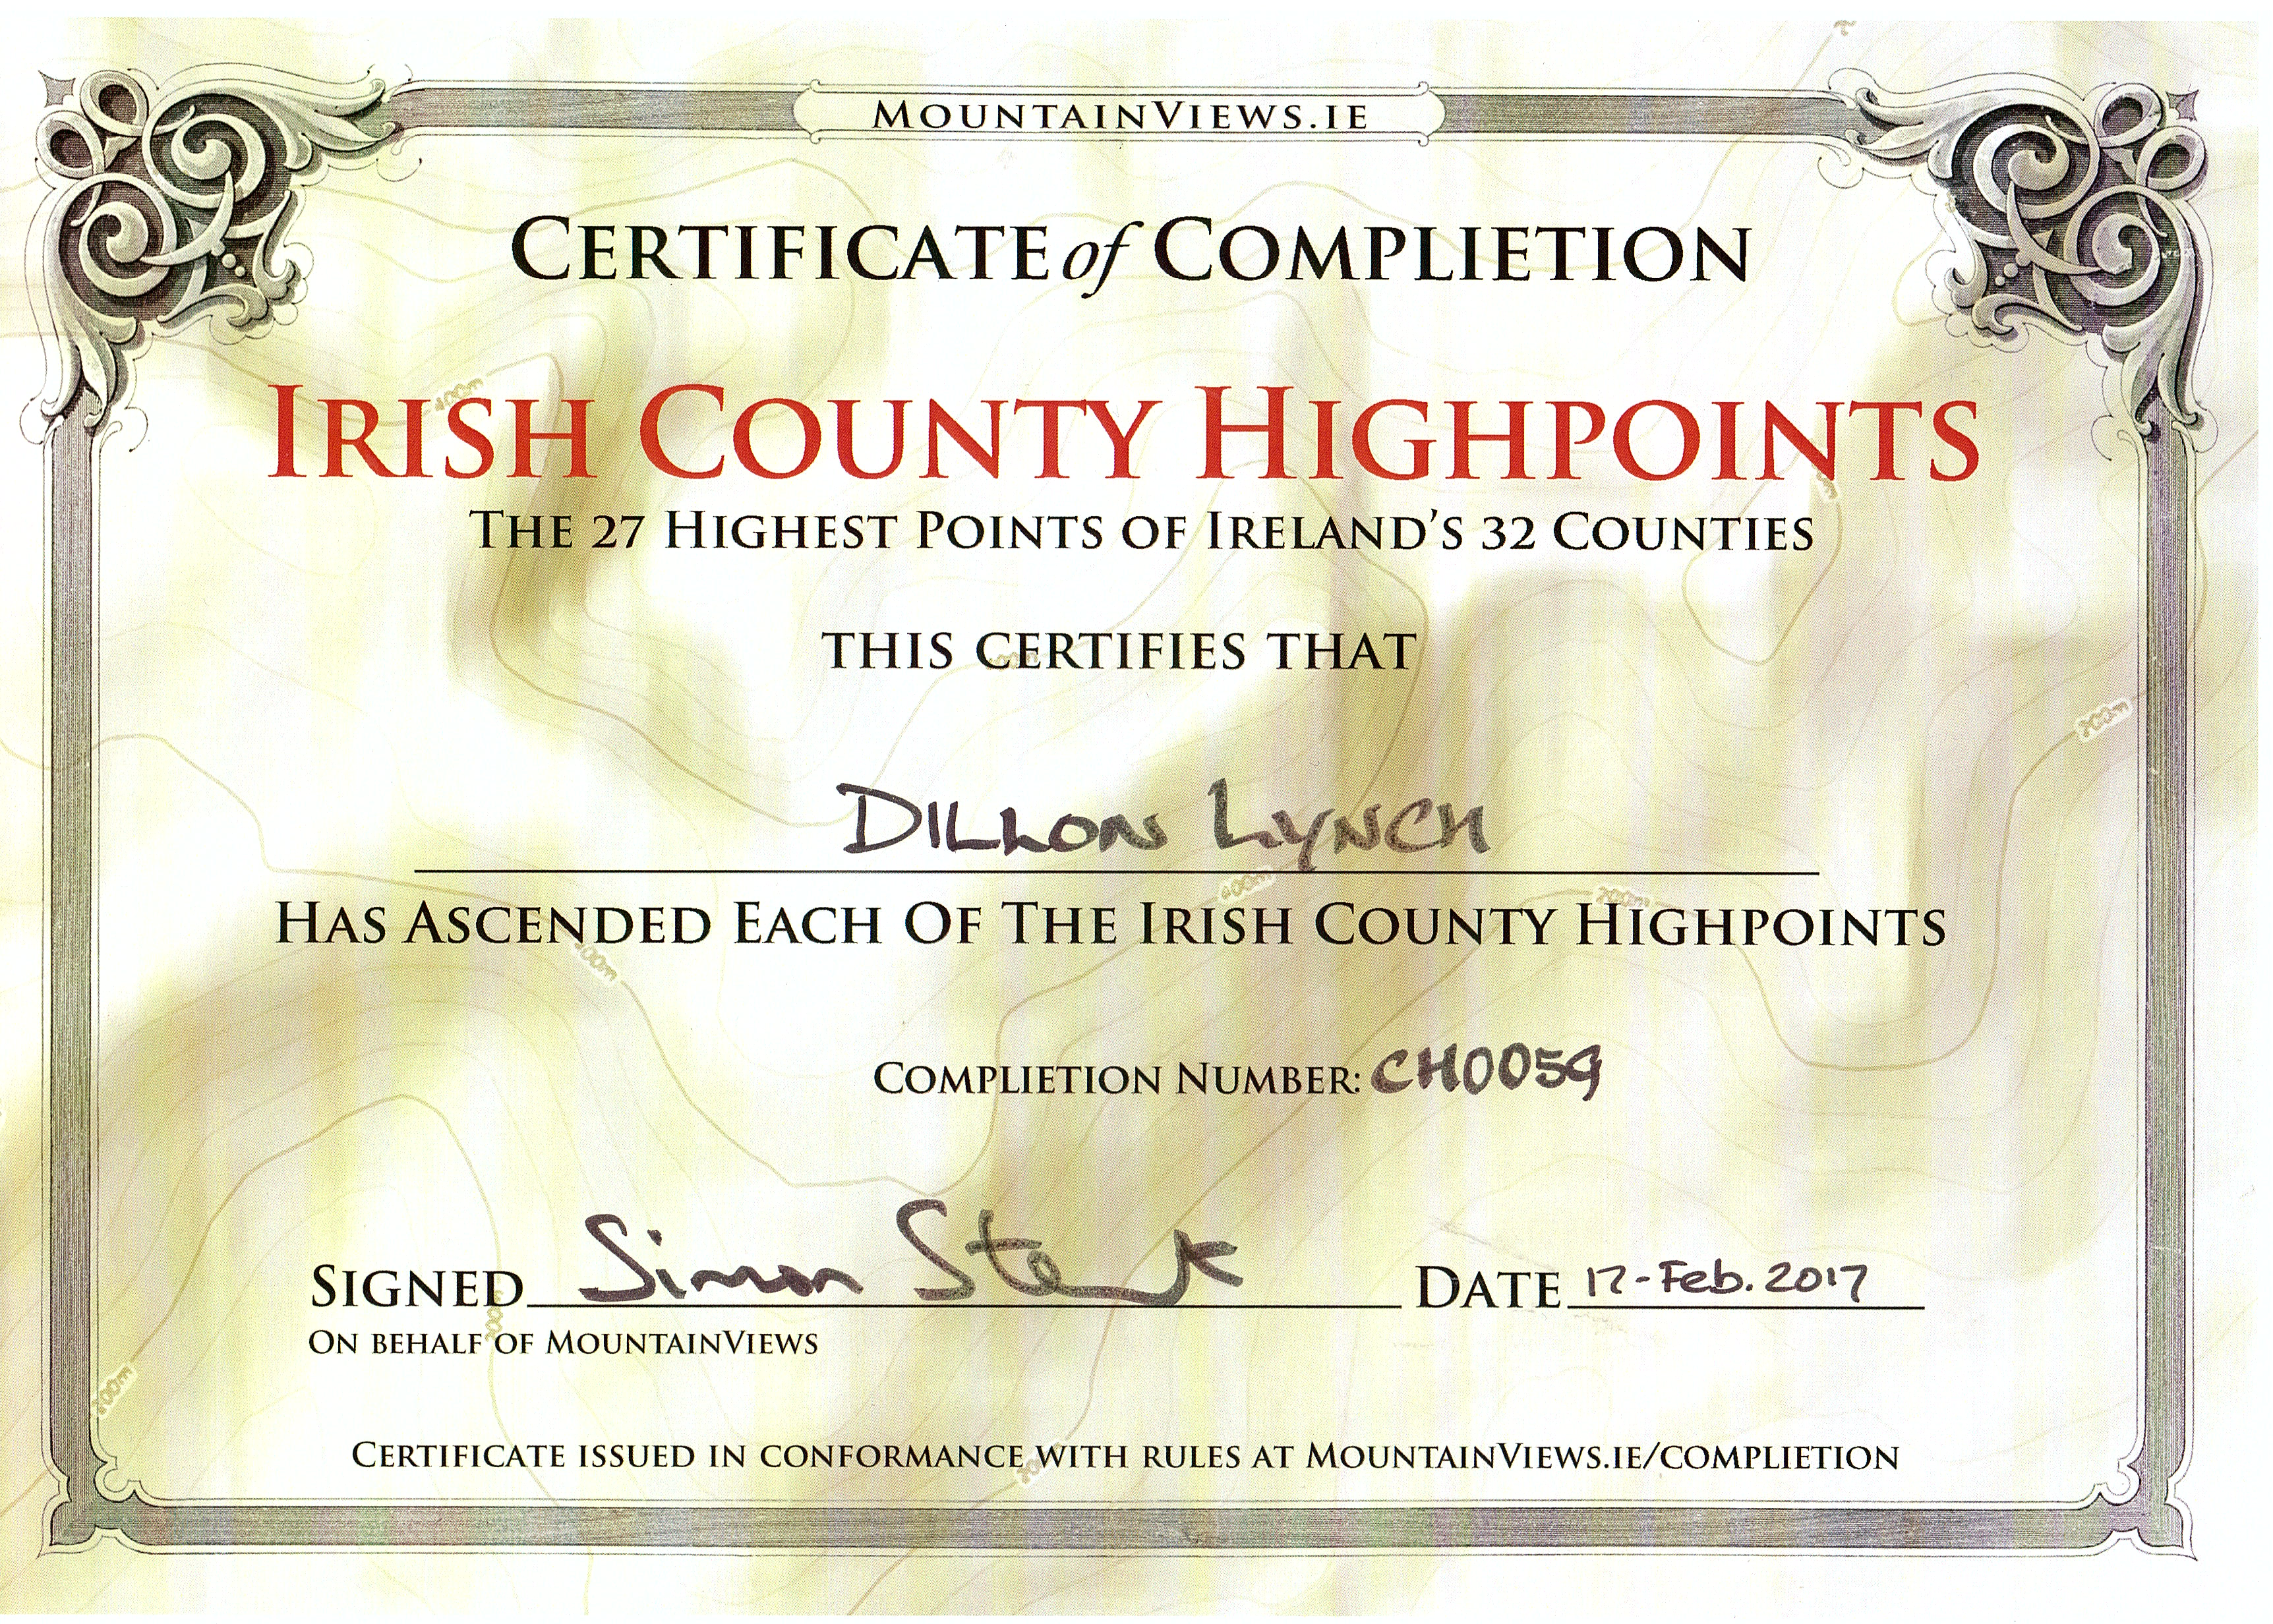 MOUNTAINVIEWS.IE
CERTIFICATE of COMPLIETION
IRISH COUNTY HIGHPOINTS
THE 27 HIGHEST POINTS OF IRELAND'S 32 COUNTIES
THIS CERTIFIES THAT
DILLON LYNCH
HAS ASCENDED EACH OF THE IRISH COUNTY HIGHPOINTS
COMPLIETION NUMBER: CH0059
SIGNED Simon DATE 17-Feb. 2017
ON BEHALF OF MOUNTAINVIEWS
CERTIFICATE ISSUED IN CONFORMANCE WITH RULES AT MOUNTAINVIEWS.IE/COMPLIETION